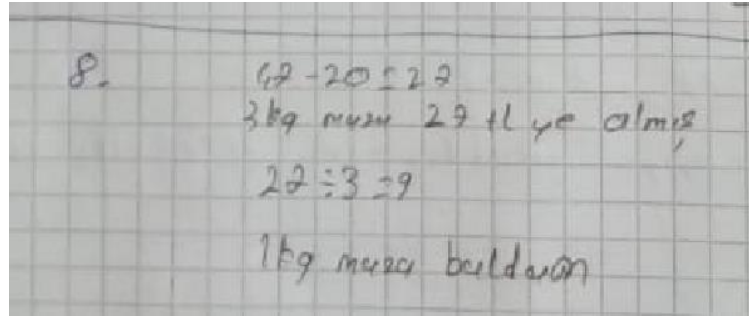 8.
47 - 20 = 27
3 kg muzu 27 tl ye almış
27 ÷ 3 = 9
1 kg muzu buldum